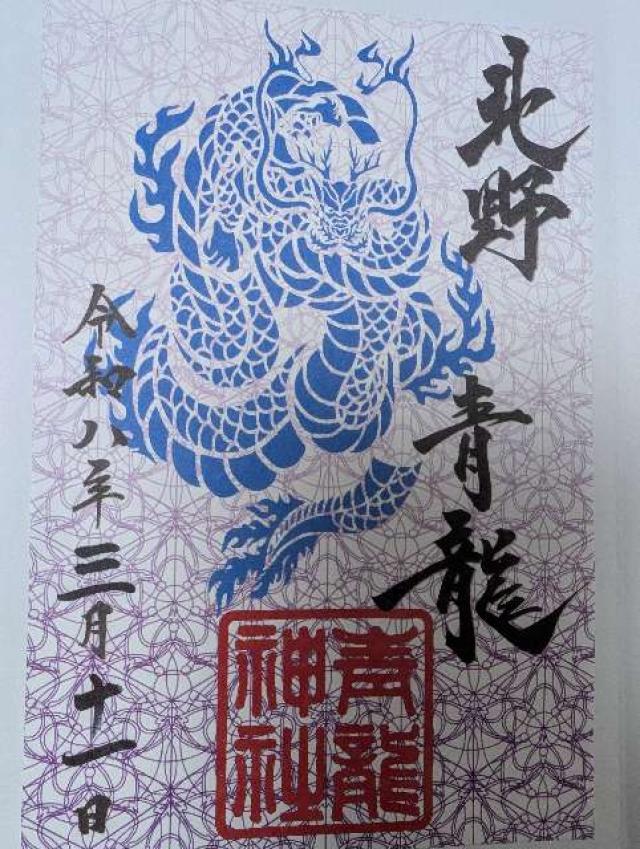 北野
青龍
青龍
神社
令和八年三月十一日